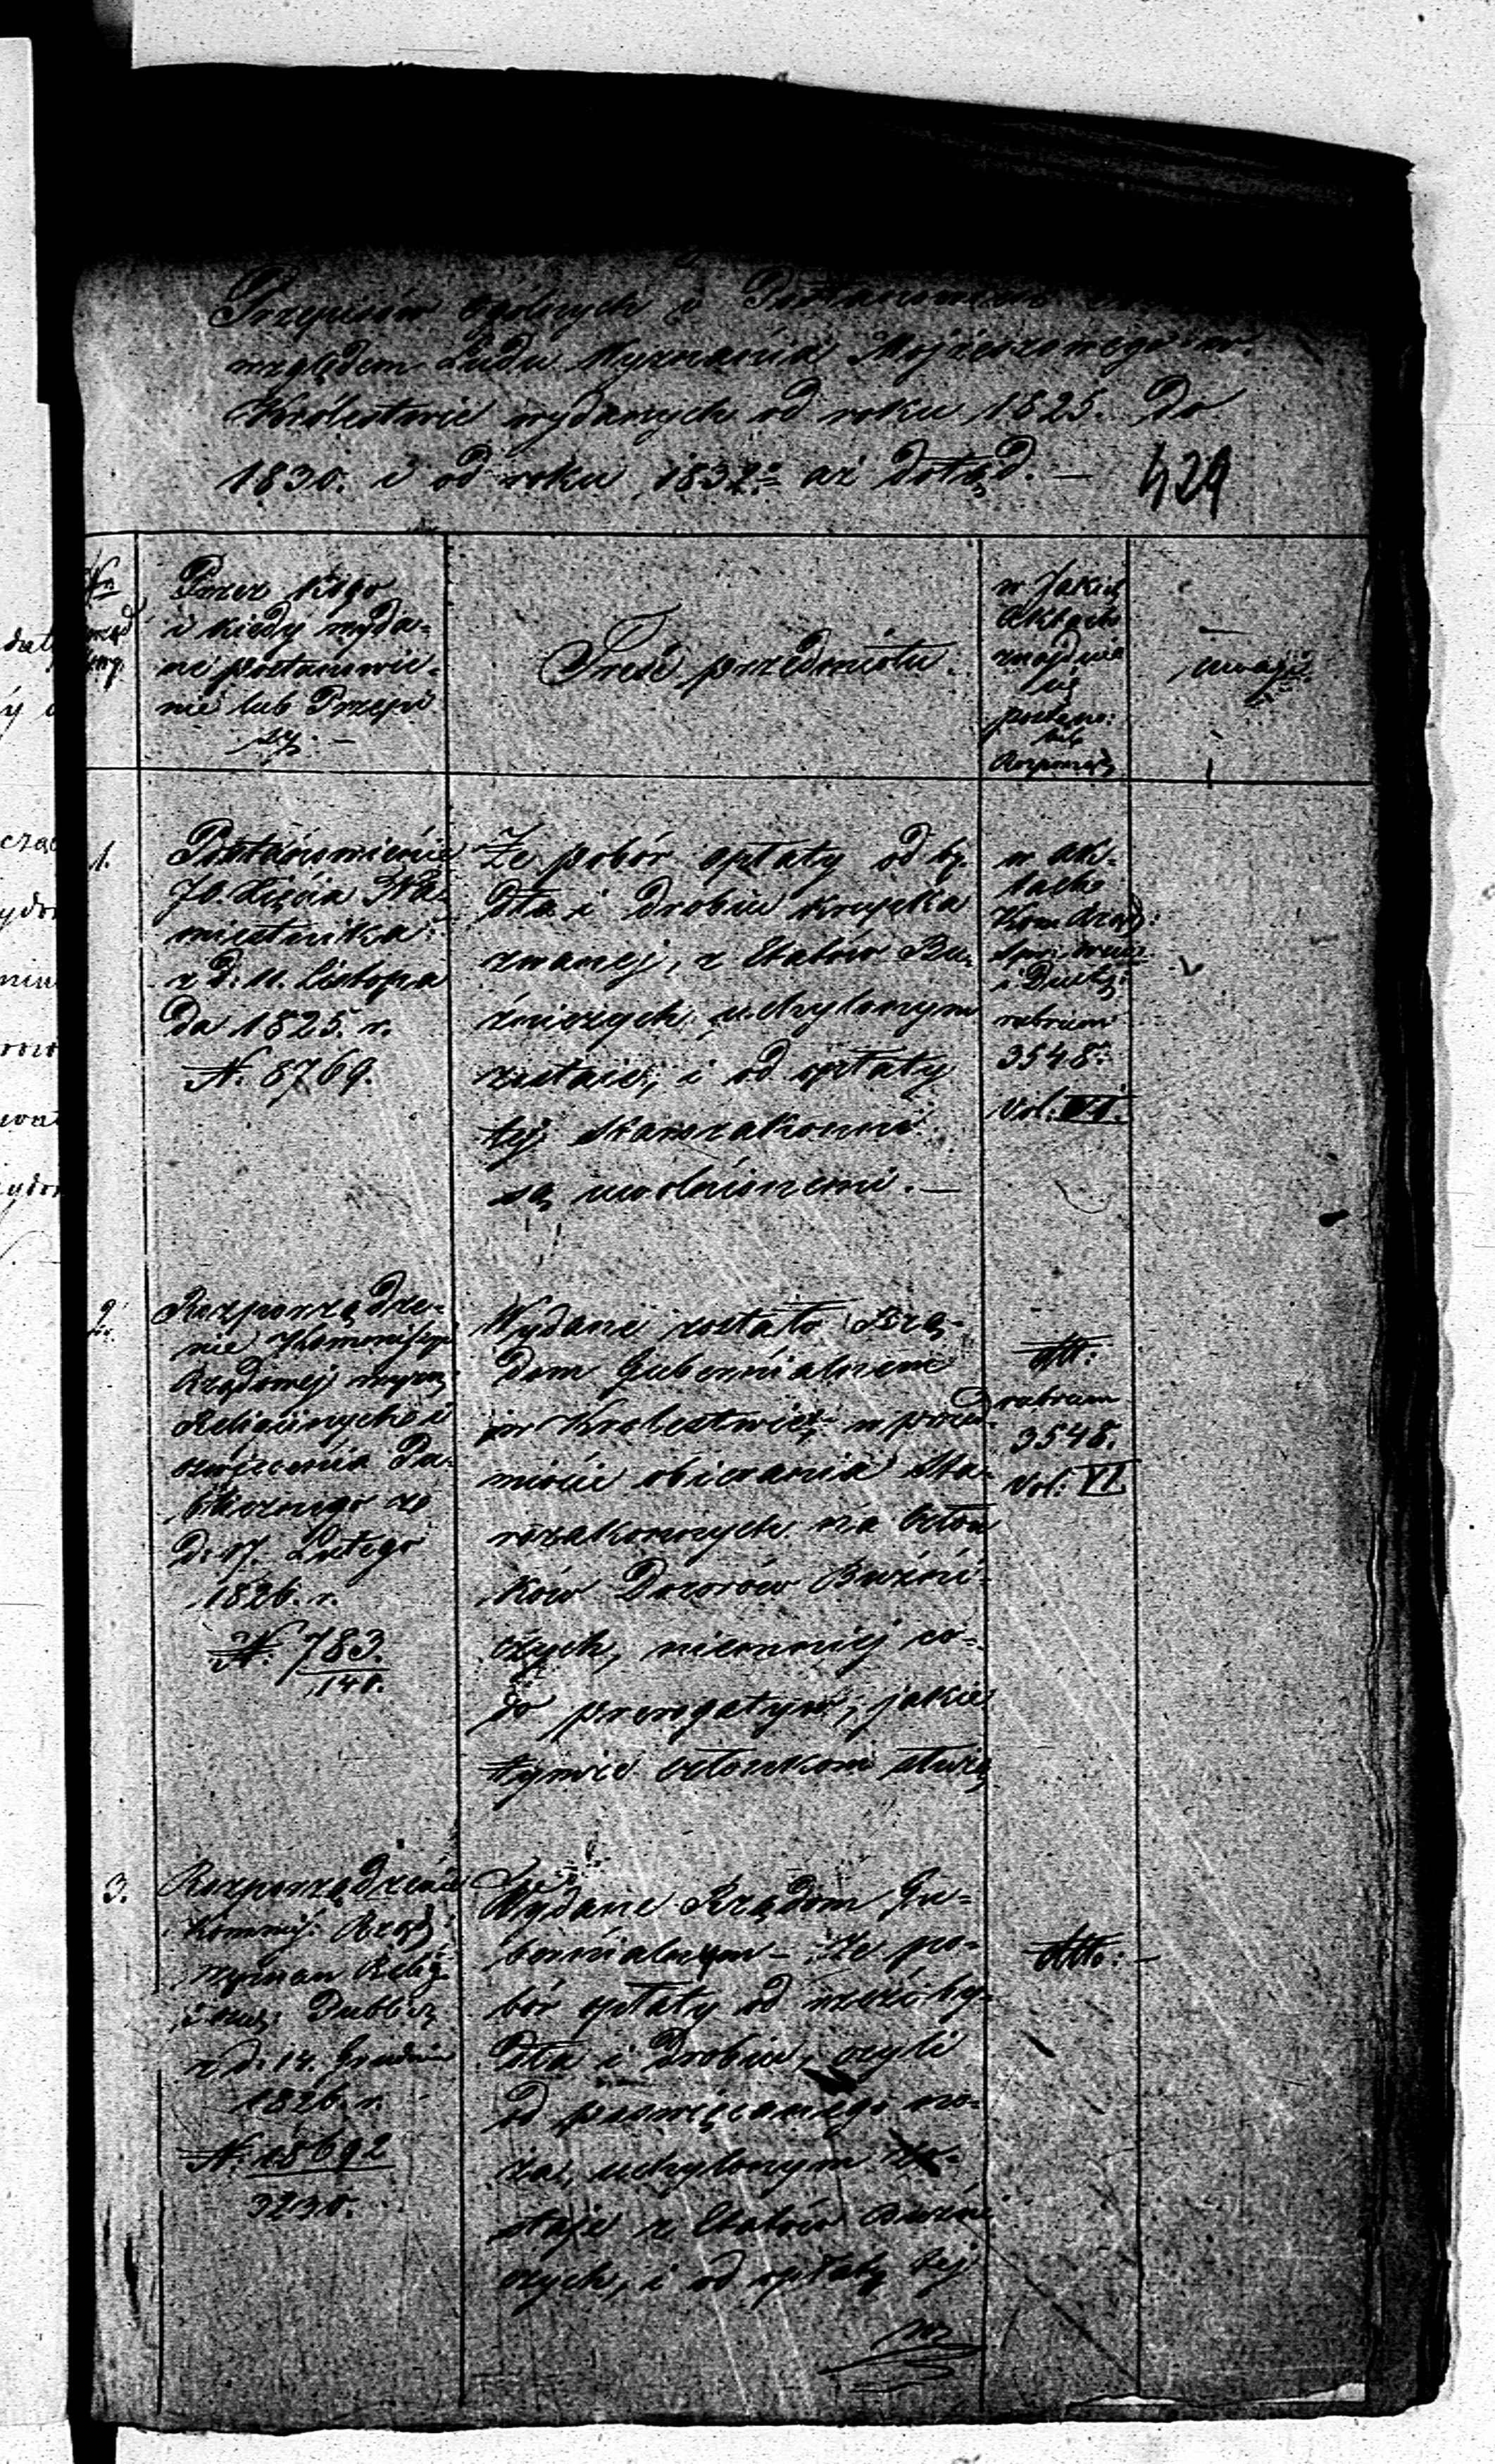 Przepisów ogólnych i Postanowień
względem Ludu Wyznania Mojżeszowego w
Królestwie wydanych od roku 1825. do
1830. i od roku 1832. aż dotąd. —
429
Nr
Przez kogo
i kiedy wyda-
ne postanowie-
nie lub Przepi
sy. —
Treść przedmiotu.
w Jakich
Aktach
znajduje
się
postano:
lub
Rozporządz
uwagi.
1.
Postanowienie
JO. Xięcia Na-
miestnika
z d: 11. Listopa
da 1825. r.
N. 8769.
Że pobór opłaty od by-
dła i drobiu krupka
zwanej, z Etatów Bu-
żniczych uchylonym
zostaje, i od opłaty
tej Starozakonni
są uwolnionemi. —
w ak-
tach
Kom. Rząd:
Spr: wew:
i Duch:
rubrum
3548.
Vol: VI.
2.
Rozporządze-
nie Kommissyi
Rządowej wyzn:
Religijnych i
oświecenia Pu-
blicznego z
d: 17. Lutego
1826. r.
N. 783.
140.
Wydane zostało Rzą-
dom Gubernialnem
w Królestwie, w przed-
miocie obierania Sta-
rozakonnych na Człon
ków Dozorów Bużni-
czych, niemniej co-
do prerogatyw, jakie
tymże członkom służą
dtt:
rubrum
3548.
Vol: VI
3.
Rozporządzenie
Kommis: Rząd:
Wyznań Relig:
i Ośw: Public
z d: 14. Grudnia
1826. r.
N. 18692
3230.
Wydane Rządom Gu-
bernialnym – że po-
bór opłaty od rzezi by-
dła i drobiu, czyli
od poswięcanego no-
ża, uchylonym zo-
staje z Etatów Bużni
czych, i od opłaty tej
dtto: —